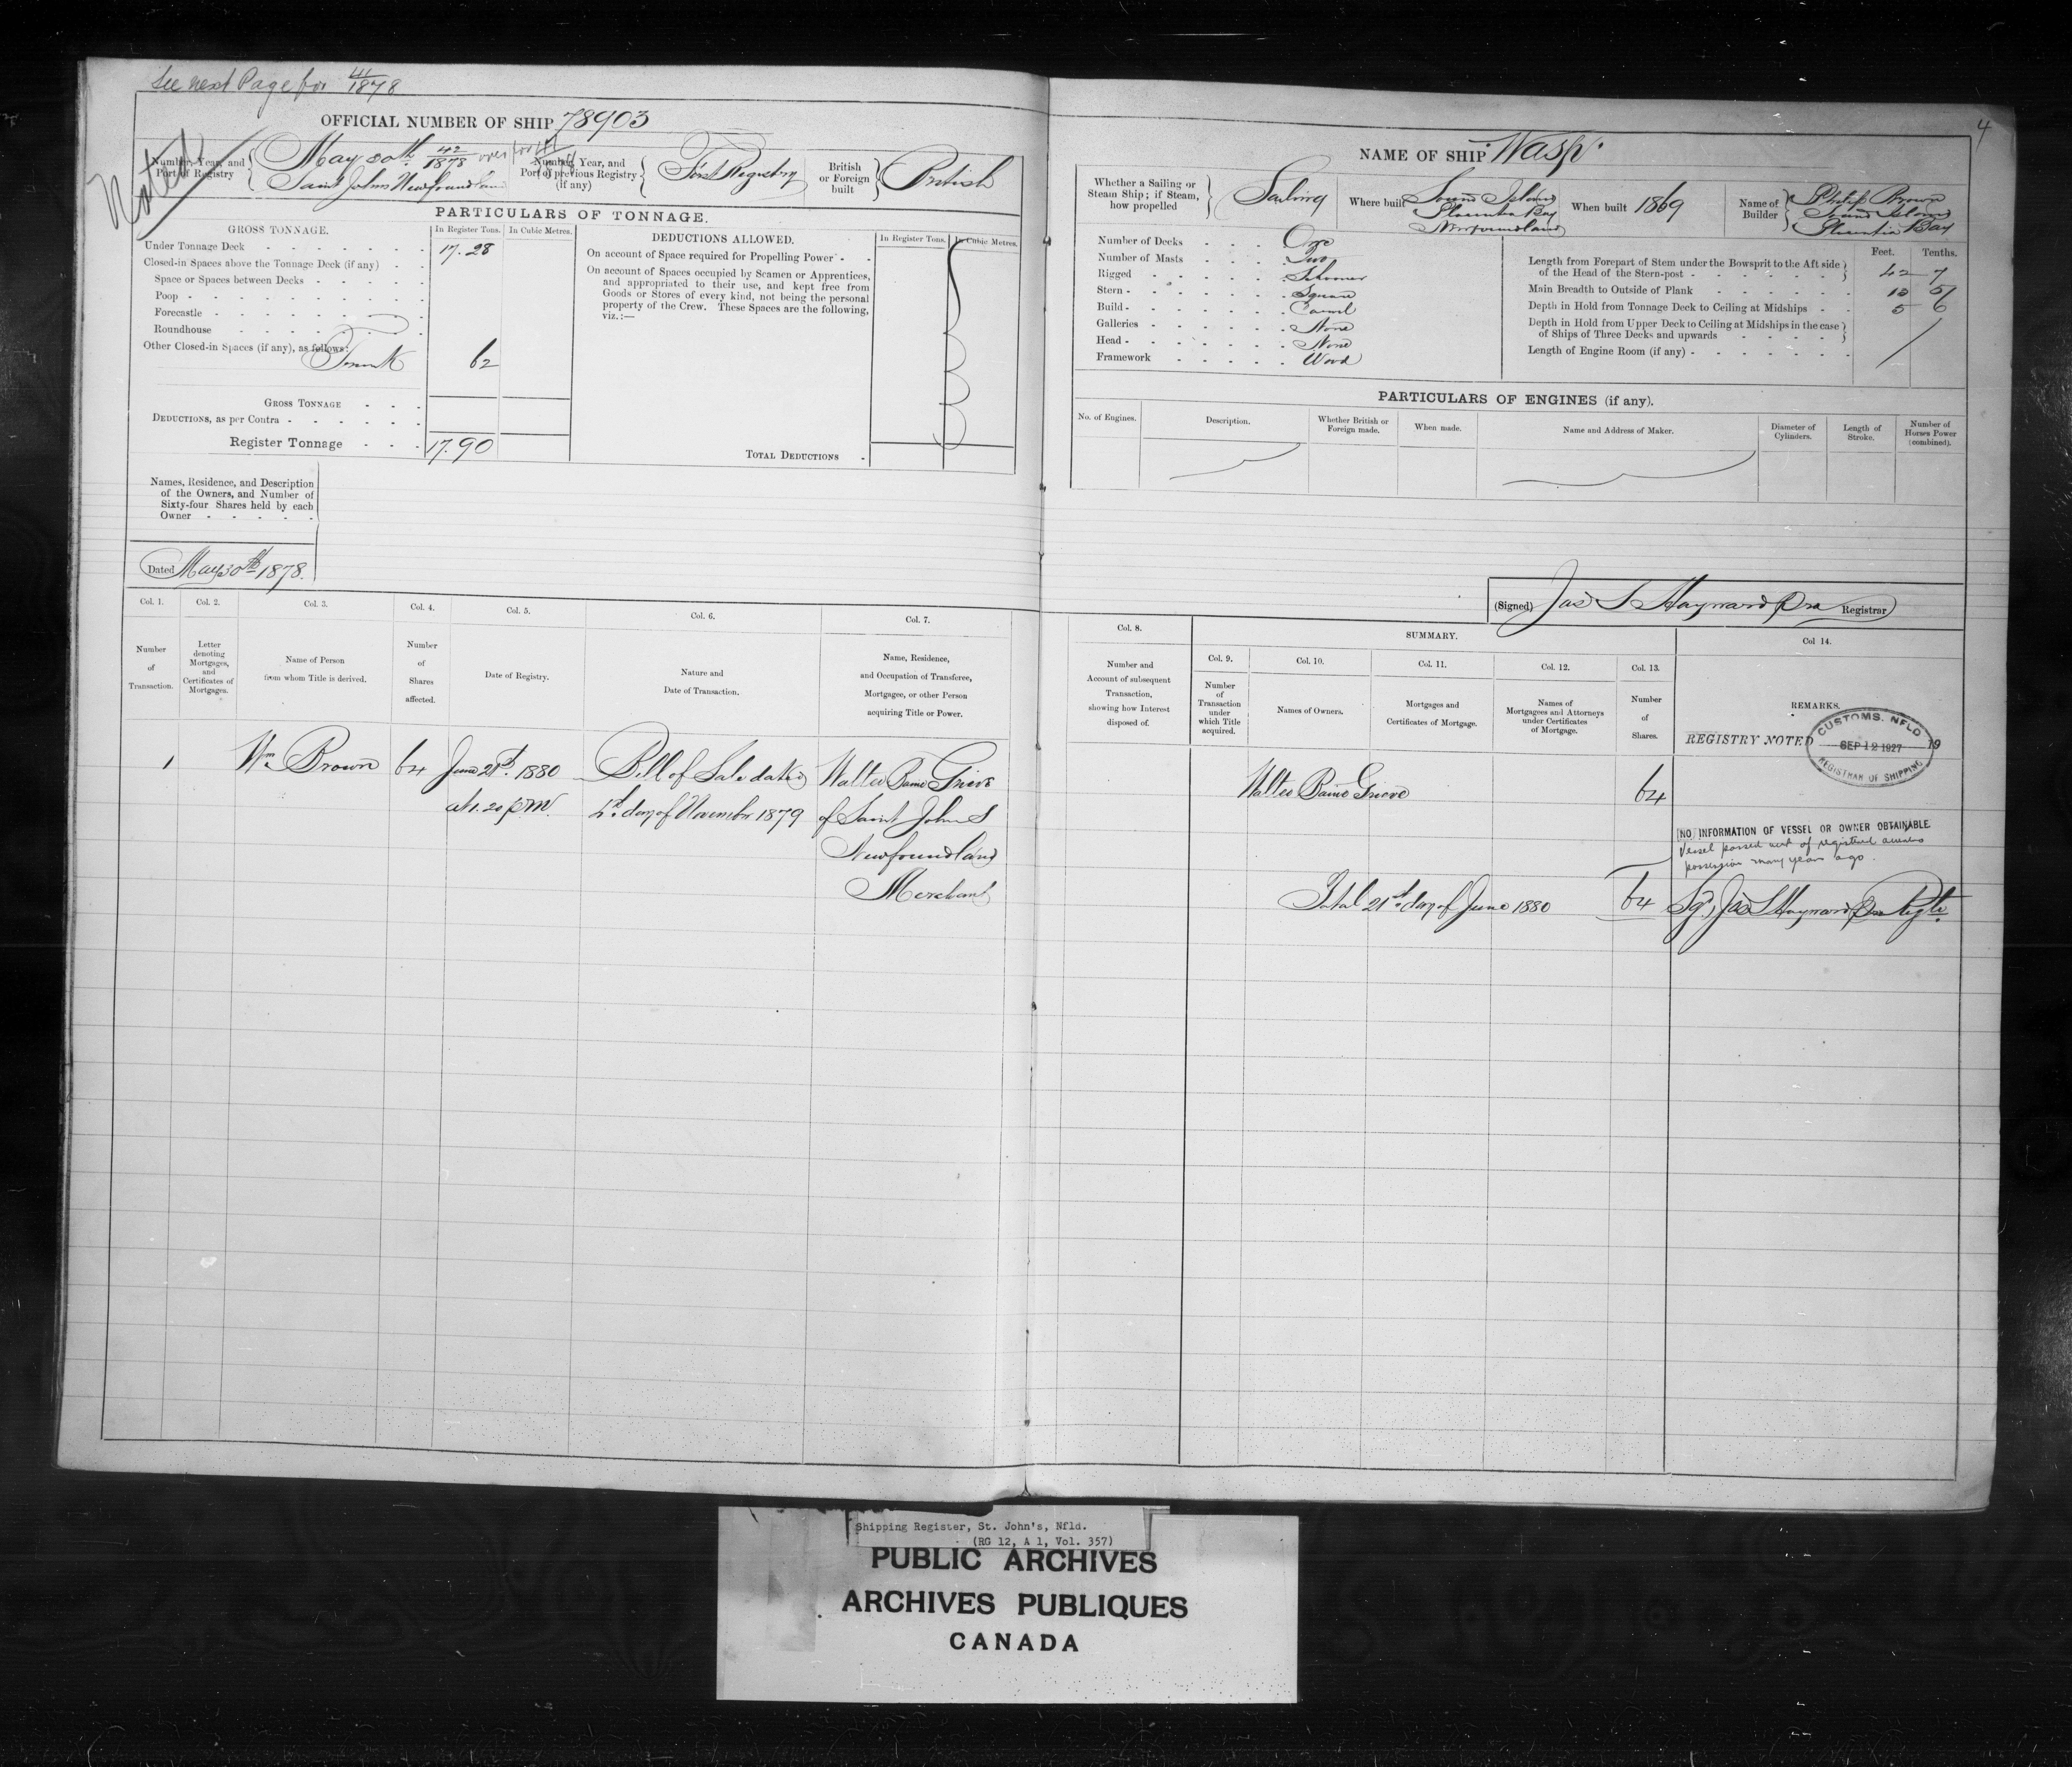 See next Page for 41/1878
4
OFFICIAL NUMBER OF SHIP 78903
NAME OF SHIP "Wasp"
Noted
Number, Year, and Port of Registry
May 30th 42/1878 over for
Saint Johns Newfoundland
Number, Year, and Port of previous Registry (if any)
First Registry
British or Foreign built
British
PARTICULARS OF TONNAGE.
GROSS TONNAGE.
In Register Tons.
In Cubic Metres.
Under Tonnage Deck 17.28
Closed-in Spaces above the Tonnage Deck (if any)
Space or Spaces between Decks
Poop
Forecastle
Roundhouse
Other Closed-in Spaces (if any), as follows:
Trunk 62
GROSS TONNAGE
DEDUCTIONS, as per Contra
Register Tonnage 17.90
DEDUCTIONS ALLOWED.
In Register Tons.
In Cubic Metres.
On account of Space required for Propelling Power
On account of Spaces occupied by Seamen or Apprentices, and appropriated to their use, and kept free from Goods or Stores of every kind, not being the personal property of the Crew. These Spaces are the following, viz.:—
TOTAL DEDUCTIONS
Names, Residence, and Description of the Owners, and Number of Sixty-four Shares held by each Owner
Dated May 30th 1878.
Whether a Sailing or Steam Ship; if Steam, how propelled
Sailing
Where built
Sound Island
Placentia Bay
Newfoundland
When built 1869
Name of Builder
Philip Brown
Sound Island
Placentia Bay
Number of Decks One
Number of Masts Two
Rigged Schooner
Stern Square
Build Carvel
Galleries None
Head None
Framework Wood
Feet. Tenths.
Length from Forepart of Stem under the Bowsprit to the Aft side of the Head of the Stern-post 42 7
Main Breadth to Outside of Plank 13 5
Depth in Hold from Tonnage Deck to Ceiling at Midships 5 6
Depth in Hold from Upper Deck to Ceiling at Midships in the case of Ships of Three Decks and upwards
Length of Engine Room (if any)
PARTICULARS OF ENGINES (if any).
No. of Engines.
Description.
Whether British or Foreign made.
When made.
Name and Address of Maker.
Diameter of Cylinders.
Length of Stroke.
Number of Horses Power (combined).
(Signed) Jas S Hayward pro Registrar
Col. 1. Col. 2. Col. 3. Col. 4. Col. 5. Col. 6. Col. 7.
Number of Transaction.
Letter denoting Mortgages, and Certificates of Mortgages.
Name of Person from whom Title is derived.
Number of Shares affected.
Date of Registry.
Nature and Date of Transaction.
Name, Residence, and Occupation of Transferee, Mortgagee, or other Person acquiring Title or Power.
Col. 8.
Number and Account of subsequent Transaction, showing how Interest disposed of.
SUMMARY.
Col. 9. Col. 10. Col. 11. Col. 12. Col. 13.
Number of Transaction under which Title acquired.
Names of Owners.
Mortgages and Certificates of Mortgage.
Names of Mortgagees and Attorneys under Certificates of Mortgage.
Number of Shares.
Col 14.
REMARKS.
1 Wm Brown 64 June 21st 1880 Bill of Sale dated Walter Baine Grieve
at 1.20 p.m. 4th day of November 1879 of Saint Johns
Newfoundland
Merchant
Walter Baine Grieve 64
Total 21st day of June 1880 64 Sgd Jas S Hayward pro Regtr
REGISTRY NOTED 19
CUSTOMS. NFLD
SEP 12 1927
REGISTRAR OF SHIPPING
[NO] INFORMATION OF VESSEL OR OWNER OBTAINABLE
Vessel passed out of registered owners
possession many years ago.
Shipping Register, St. John's, Nfld.
(RG 12, A 1, Vol. 357)
PUBLIC ARCHIVES
ARCHIVES PUBLIQUES
CANADA